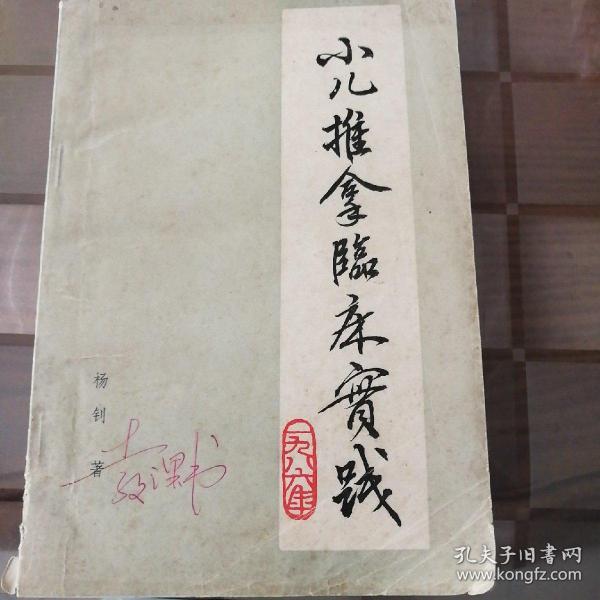 小儿推拿臨床實践
一九八六年
杨钊著
教课书
孔夫子旧書网
www.kongfz.com